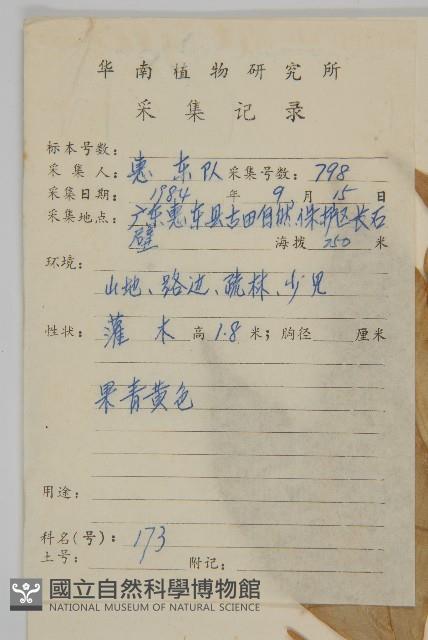 华南植物研究所
采集记录
标本号数：
采集人：惠东队 采集号数：798
采集日期：1984年9月15日
采集地点：广东惠东县古田自然保护区长石
壁 海拨 250 米
环境：
山地、路边、疏林、少见
性状：灌木 高1.8米；胸径 厘米
果青黄色
用途：
科名(号)：173
土号： 附记：
國立自然科學博物館
NATIONAL MUSEUM OF NATURAL SCIENCE